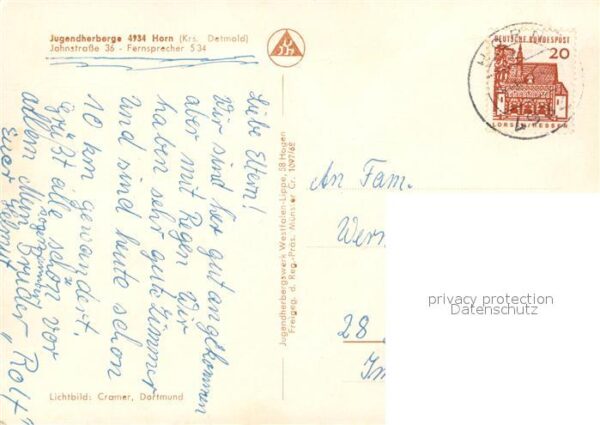 Jugendherberge 4934 Horn (Krs. Detmold)
Jahnstraße 36 - Fernsprecher 534
Liebe Eltern!
Wir sind hier gut angekommen
aber mit Regen. Wir
haben sehr gute Zimmer
und sind heute schon
10 km gewandert.
Grüßt alle schön vor
allem Mein Bruder „Rolf“
Euer Helmut
Lichtbild: Cramer, Dortmund
Jugendherbergswerk Westfalen-Lippe, 58 Hagen
Freigeg. d. Reg.-Präs. Münster Cr. 1097/62
DEUTSCHE BUNDESPOST
20
LORSCH/HESSEN
An Fam.
Wern
28
privacy protection
Datenschutz